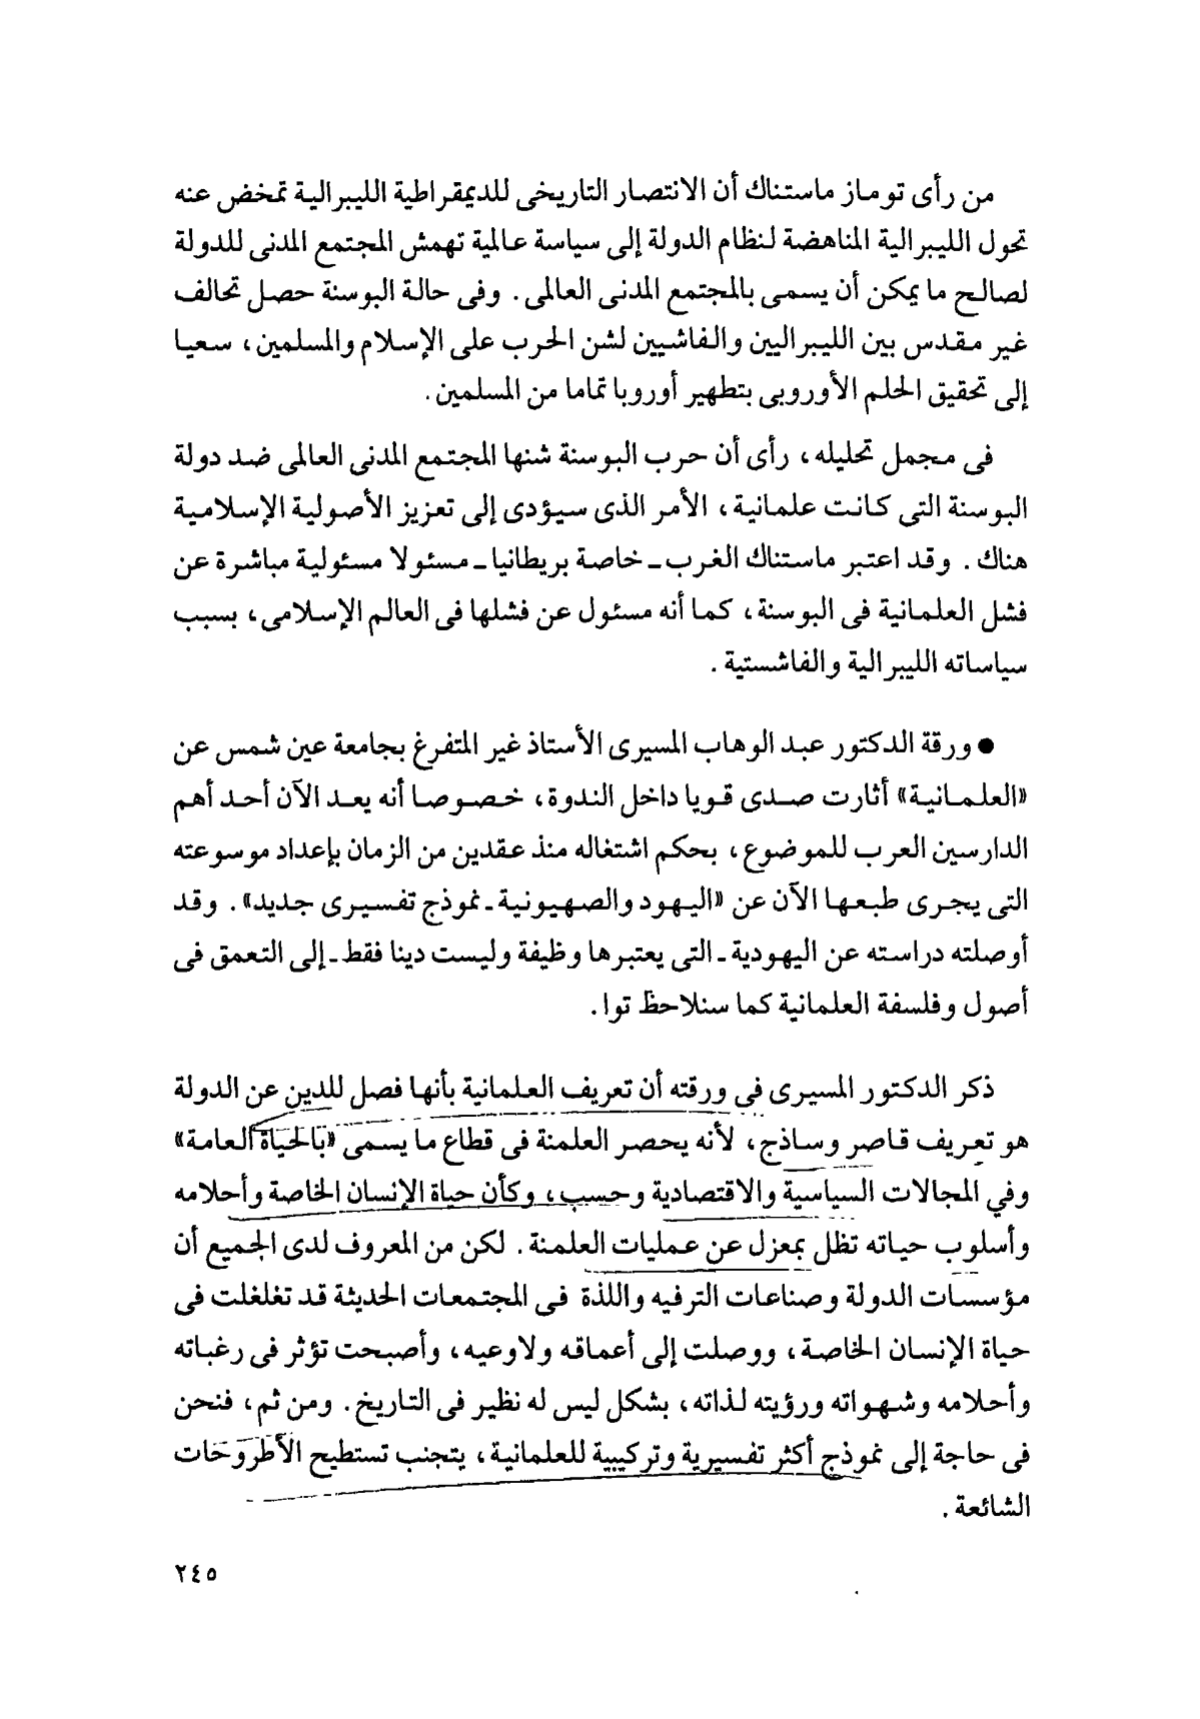 من رأى توماز ماستناك أن الانتصار التاريخى للديمقراطية الليبرالية تمخض عنه
تحول الليبرالية المناهضة لنظام الدولة إلى سياسة عالمية تهمش المجتمع المدنى للدولة
لصالح ما يمكن أن يسمى بالمجتمع المدنى العالمى. وفى حالة البوسنة حصل تحالف
غير مقدس بين الليبراليين والفاشيين لشن الحرب على الإسلام والمسلمين، سعيا
إلى تحقيق الحلم الأوروبى بتطهير أوروبا تماما من المسلمين.
فى مجمل تحليله، رأى أن حرب البوسنة شنها المجتمع المدنى العالمى ضد دولة
البوسنة التى كانت علمانية، الأمر الذى سيؤدى إلى تعزيز الأصولية الإسلامية
هناك. وقد اعتبر ماستناك الغرب ـ خاصة بريطانيا ـ مسئولا مسئولية مباشرة عن
فشل العلمانية فى البوسنة، كما أنه مسئول عن فشلها فى العالم الإسلامى، بسبب
سياساته الليبرالية والفاشستية.
● ورقة الدكتور عبد الوهاب المسيرى الأستاذ غير المتفرغ بجامعة عين شمس عن
«العلمانية» أثارت صدى قويا داخل الندوة، خصوصا أنه يعد الآن أحد أهم
الدارسين العرب للموضوع، بحكم اشتغاله منذ عقدين من الزمان بإعداد موسوعته
التى يجرى طبعها الآن عن «اليهود والصهيونية ـ نموذج تفسيرى جديد». وقد
أوصلته دراسته عن اليهودية ـ التى يعتبرها وظيفة وليست دينا فقط ـ إلى التعمق فى
أصول وفلسفة العلمانية كما سنلاحظ توا.
ذكر الدكتور المسيرى فى ورقته أن تعريف العلمانية بأنها فصل للدين عن الدولة
هو تعريف قاصر وساذج، لأنه يحصر العلمنة فى قطاع ما يسمى «بالحياة العامة»
وفي المجالات السياسية والاقتصادية وحسب، وكأن حياة الإنسان الخاصة وأحلامه
وأسلوب حياته تظل بمعزل عن عمليات العلمنة. لكن من المعروف لدى الجميع أن
مؤسسات الدولة وصناعات الترفيه واللذة فى المجتمعات الحديثة قد تغلغلت فى
حياة الإنسان الخاصة، ووصلت إلى أعماقه ولاوعيه، وأصبحت تؤثر فى رغباته
وأحلامه وشهواته ورؤيته لذاته، بشكل ليس له نظير فى التاريخ. ومن ثم، فنحن
فى حاجة إلى نموذج أكثر تفسيرية وتركيبية للعلمانية، يتجنب تستطيح الأطروحات
الشائعة.
٢٤٥